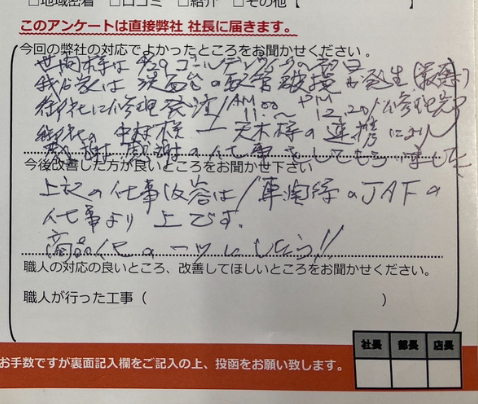 □地域密着 □口コミ □紹介 □その他【
このアンケートは直接弊社 社長に届きます。
今回の弊社の対応でよかったところをお聞かせください。
世間様は 連休
我が家は 洗面台の 破損が発生
御社に修理発注/AM 11:00〜PM 12:20/修理完了
御社の 中村様 ー 天木様の連携により
感謝 感謝の仕事をしてもらいました
今後改善した方が良いところをお聞かせ下さい
上記の仕事内容は/車関係のJAFの
仕事より 上です。
商品化の一ツにしたら!!
職人の対応の良いところ、改善してほしいところをお聞かせください。
職人が行った工事( )
社長 部長 店長
お手数ですが裏面記入欄をご記入の上、投函をお願い致します。